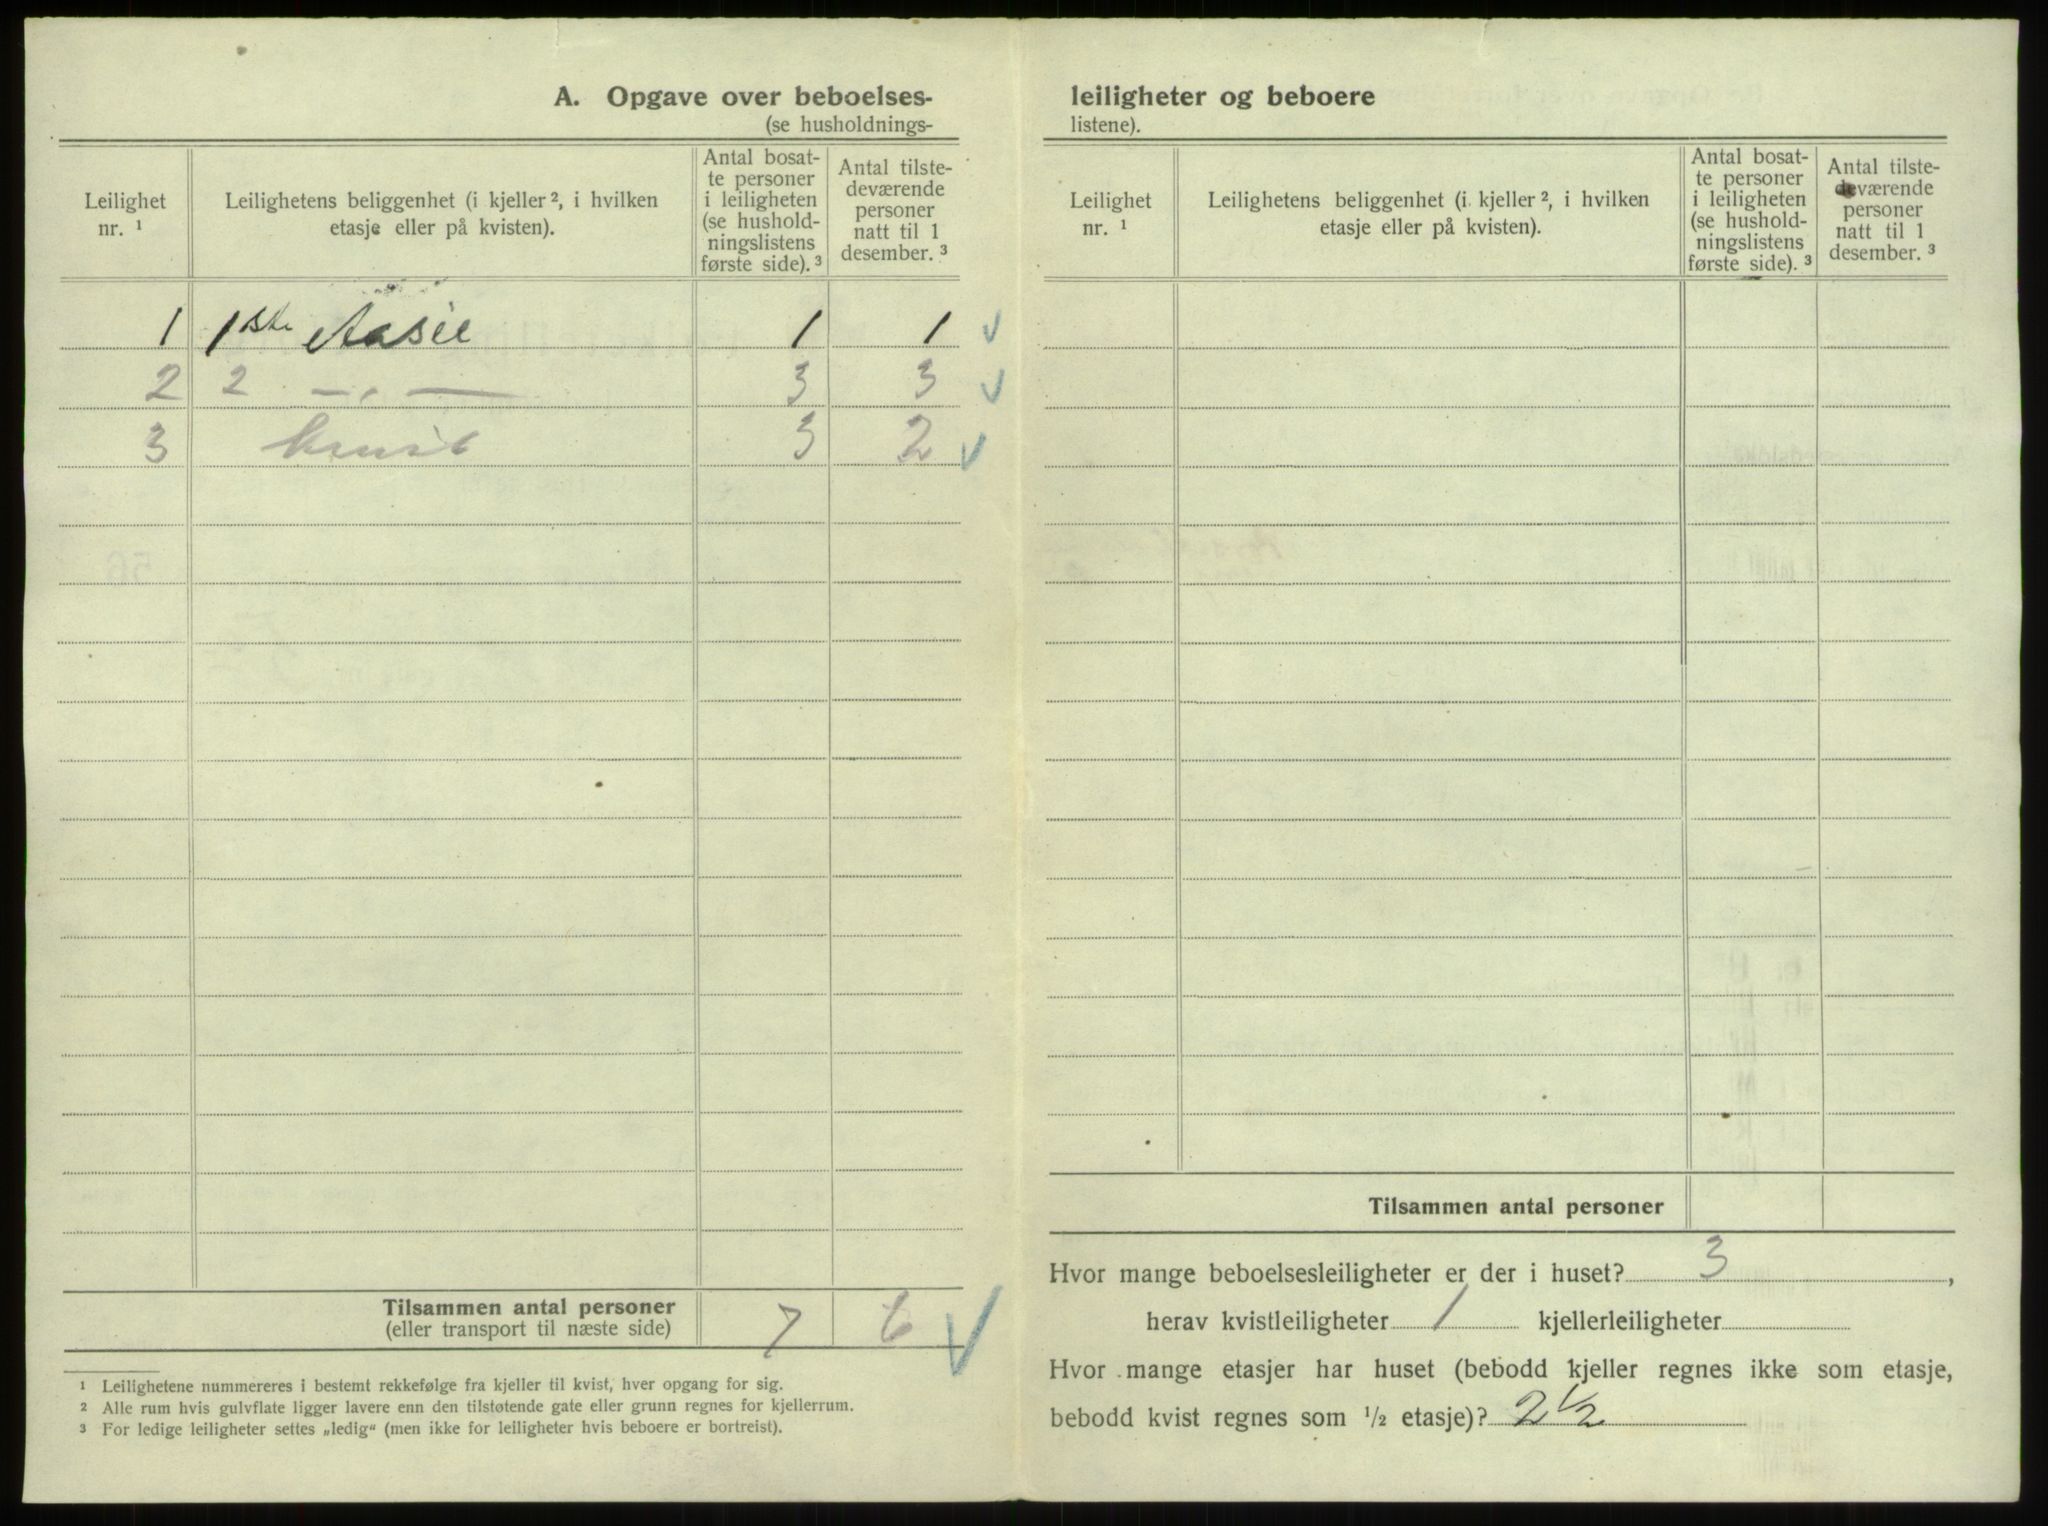 A. Opgave over beboelses-
(se husholdnings-
Leilighet
nr. ¹
Leilighetens beliggenhet (i kjeller ², i hvilken
etasje eller på kvisten).
Antal bosat-
te personer
i leiligheten
(se hushold-
ningslistens
første side). ³
Antal tilste-
deværende
personer
natt til 1
desember. ³
1 1ste 1 1
2 2 — „ — 3 3
3 kvist 3 2
Tilsammen antal personer
(eller transport til næste side) 7 6
¹ Leilighetene nummereres i bestemt rekkefølge fra kjeller til kvist, hver opgang for sig.
² Alle rum hvis gulvflate ligger lavere enn den tilstøtende gate eller grunn regnes for kjellerrum.
³ For ledige leiligheter settes „ledig“ (men ikke for leiligheter hvis beboere er bortreist).
leiligheter og beboere
listene).
Leilighet
nr. ¹
Leilighetens beliggenhet (i kjeller ², i hvilken
etasje eller på kvisten).
Antal bosat-
te personer
i leiligheten
(se hushold-
ningslistens
første side). ³
Antal tilste-
deværende
personer
natt til 1
desember. ³
Tilsammen antal personer
Hvor mange beboelsesleiligheter er der i huset? 3,
herav kvistleiligheter 1 kjellerleiligheter
Hvor mange etasjer har huset (bebodd kjeller regnes ikke som etasje,
bebodd kvist regnes som ½ etasje)? 2 ½